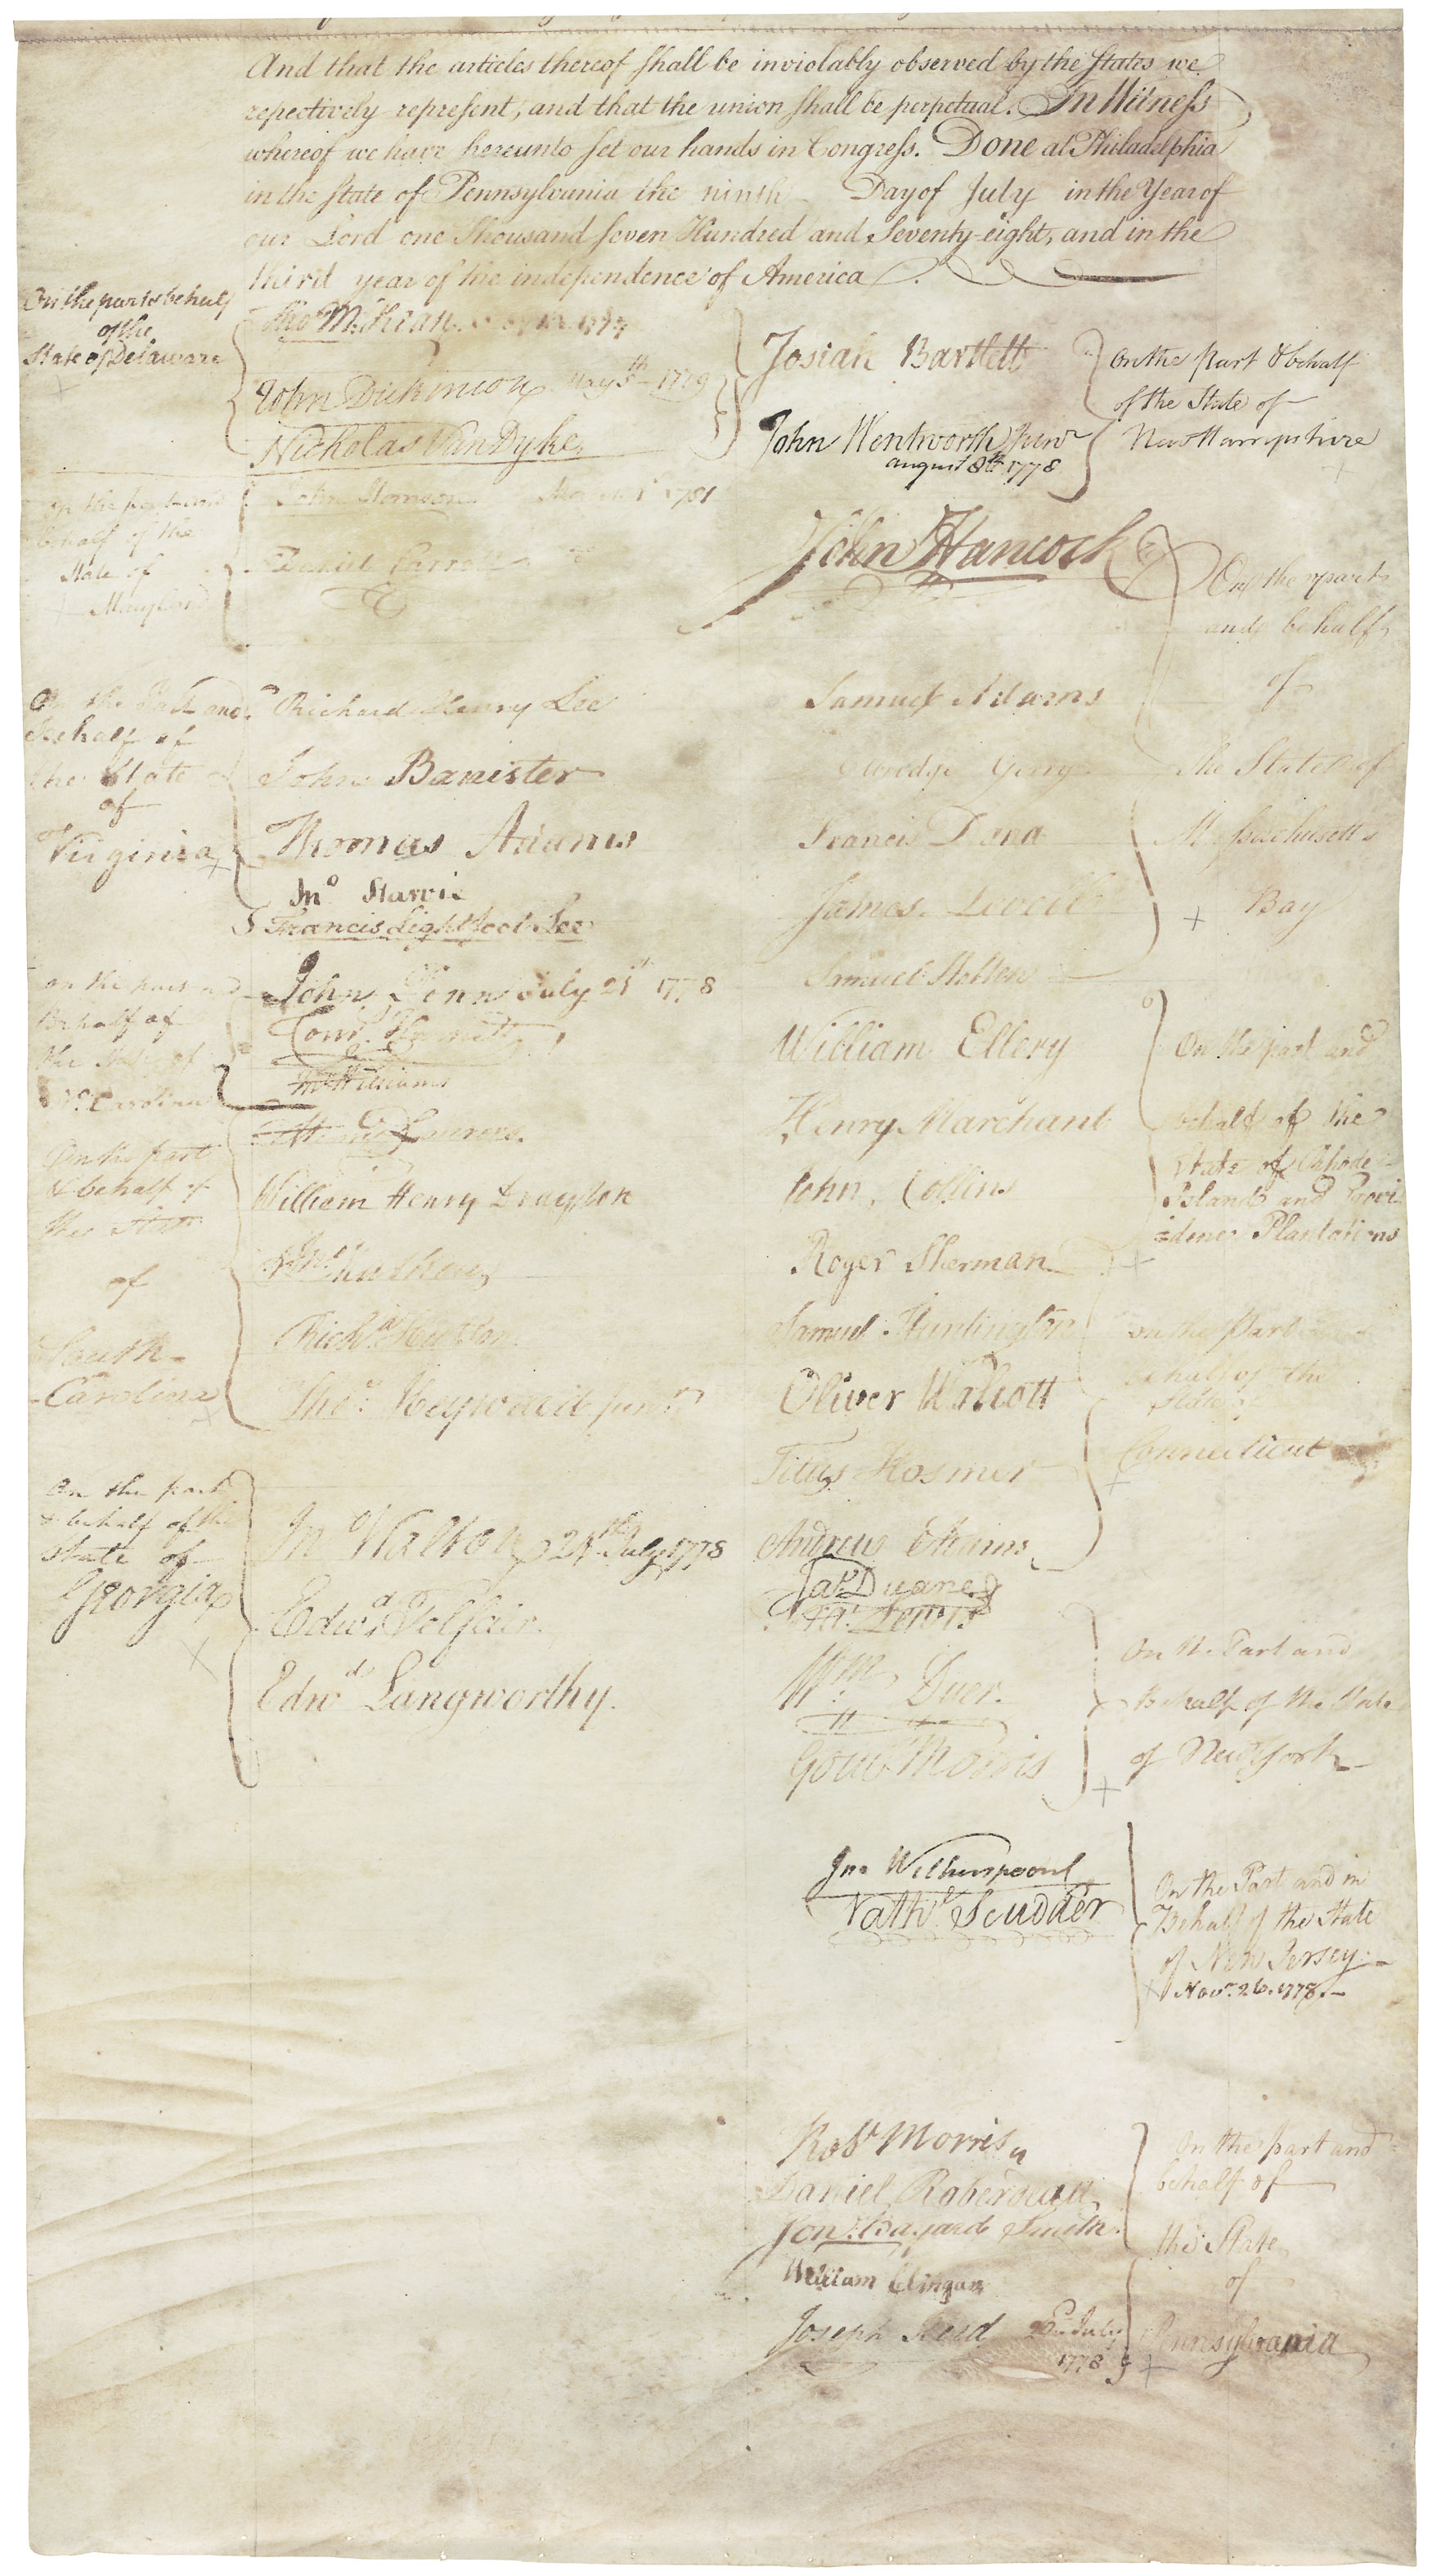 And that the articles thereof shall be inviolably observed by the States we
repectively represent, and that the union shall be perpetual. In Witness
whereof we have hereunto set our hands in Congress. Done at Philadelphia
in the State of Pennsylvania the ninth Day of July in the Year of
our Lord one Thousand seven Hundred and Seventy-eight, and in the
third year of the independence of America.
On the part & behalf
of the
State of Delaware
Tho M:Kean
John Dickinson May 5th 1779
Nicholas VanDyke,
on the part and
behalf of the
State of
Maryland
John Hanson March 1 1781
Daniel Carroll do
On the Part and
Behalf of
the State
of
Virginia
Richard Henry Lee
John Banister
Thomas Adams
Jno Harvie
Francis Lightfoot Lee
on the part and
Behalf of
the State of
No Carolina
John Penn July 21st 1778
Corns Harnett
Jno Williams
On the part
& behalf of
the State
of
South
Carolina
Henry Laurens.
William Henry Drayton
Jno Mathews
Richd Hutson
Thos Heyward junr
On the part
& behalf of the
State of
Georgia
Jno Walton 24th July 1778
Edwd Telfair.
Edwd Langworthy.
Josiah Bartlett
John Wentworth Junr
august 8th 1778
On the Part & behalf
of the State of
New Hampshire
John Hancock
Samuel Adams
Elbridge Gerry
Francis Dana
James Lovell
Samuel Holten
On the part
and behalf
of
The State of
Massachusetts
Bay
William Ellery
Henry Marchant
John Collins
On the part and
behalf of the
State of Rhode
Island and Provi
=dence Plantations
Roger Sherman
Samuel Huntington
Oliver Wolcott
Titus Hosmer
Andrew Adams
on the Part
behalf of the
State of
Connecticut
Jas Duane
Fra: Lewis
Wm: Duer.
Gouv Morris
On the Part and
Behalf of the State
of New York
Jno Witherspoon
Nathl Scudder
On the Part and in
Behalf of the State
of New Jersey.
Novr. 26. 1778.
Robt Morris
Daniel Roberdeau
Jon: Bayard Smith.
William Clingan
Joseph Reed 22d July
1778
On the part and
behalf of
the State
of
Pennsylvania